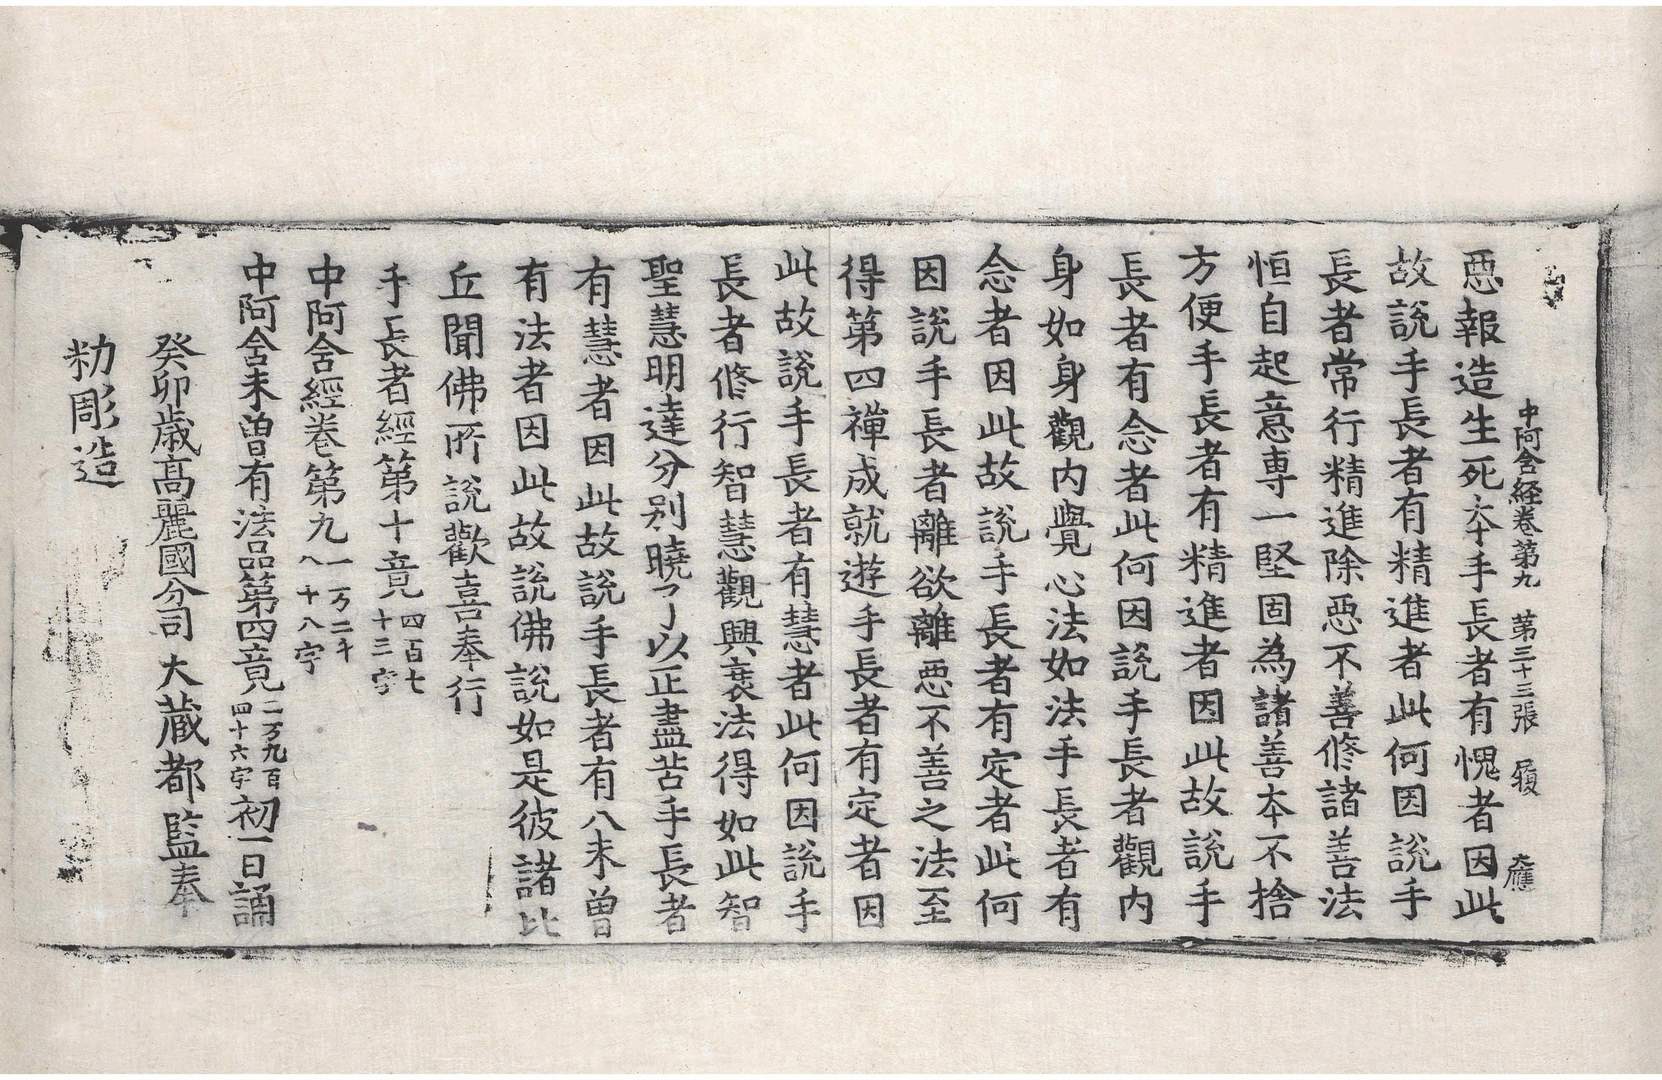 中阿含経卷第九　第三十三張　履　大應
惡報造生死夲手長者有愧者因此
故說手長者有精進者此何因說手
長者常行精進除惡不善修諸善法
恒自起意專一堅固為諸善夲不捨
方便手長者有精進者因此故說手
長者有念者此何因說手長者觀内
身如身觀内覺心法如法手長者有
念者因此故說手長者有定者此何
因說手長者離欲離惡不善之法至
得第四禪成就遊手長者有定者因
此故說手長者有慧者此何因說手
長者修行智慧觀興衰法得如此智
聖慧明達分别曉了以正盡苦手長者
有慧者因此故說手長者有八未曾
有法者因此故說佛說如是彼諸比
丘聞佛所說歡喜奉行
手長者經第十竟四百七十三字
中阿含經卷第九一万二千八十八字
中阿含未曾有法品第四竟二万九百四十六字初一日誦
癸卯歳高麗國分司大藏都監奉
勑彫造